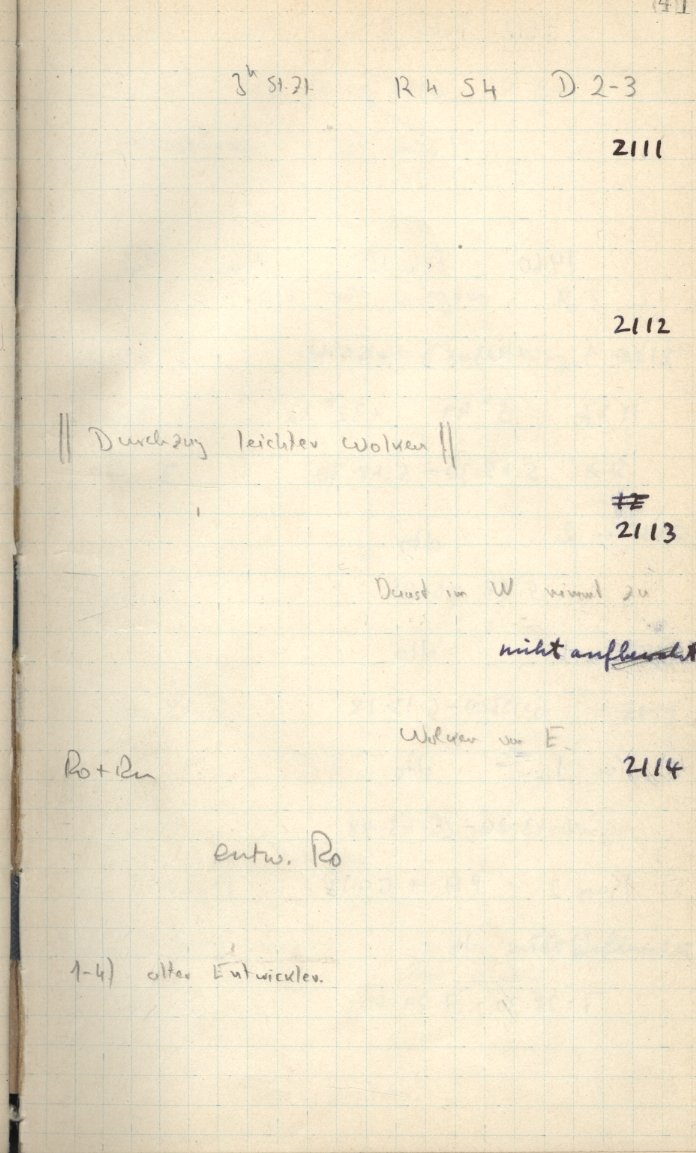 (41
3h St. Zt. R 4 S 4 D. 2-3
2111
2112
|| Durchzug leichter Wolken ||
2113
Dunst im W nimmt zu
nicht aufbewahrt
Wolken von E.
Ro + Ru 2114
entw. Ro
1-4) alter Entwickler.